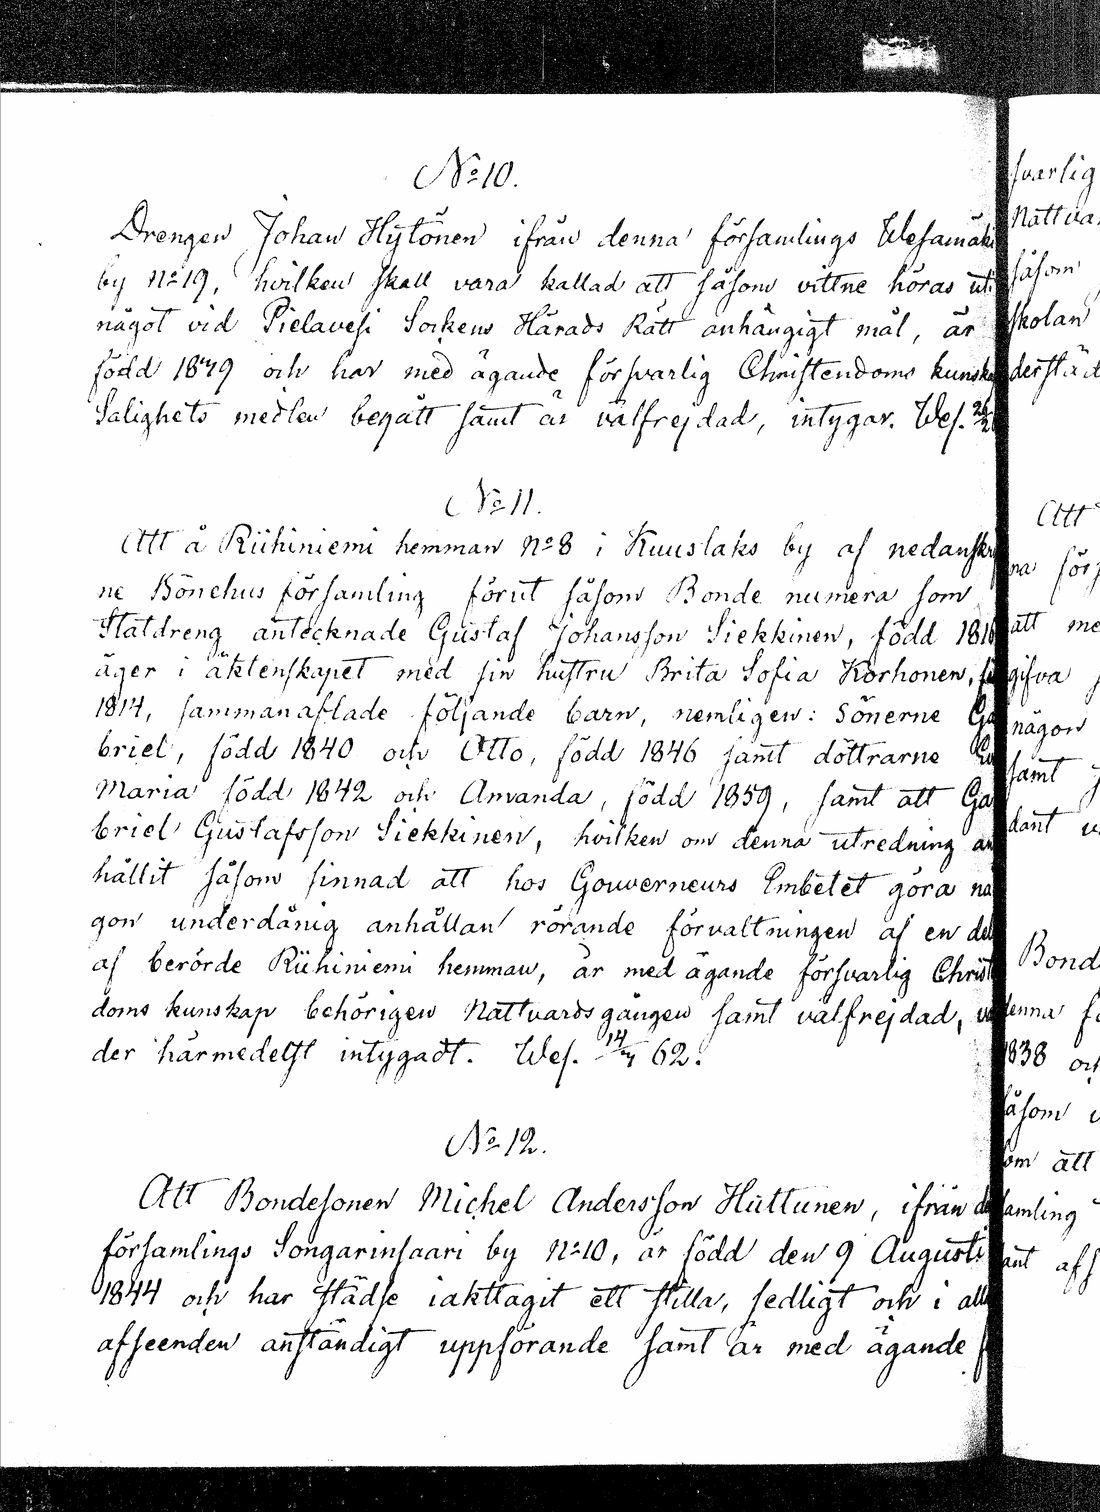 No 10.
Drengen Johan Hytönen ifrån denna församlings Wesamäki
by No 19, hvilken skall vara kallad att såsom vittne höras uti
något vid Pielavesi Sockens Härads Rätt anhängigt mål, är
född 1849 och har med ägande försvarlig Christendoms kunska
Salighets medlen begått samt är välfrejdad, intygar. Wes.
No 11.
Att å Riihiniemi hemman No 8 i Kuuslaks by af nedanskr
ne Bönehus församling förut såsom Bonde numera som
Statdreng antecknade Gustaf Johansson Siekkinen, född 1816
äger i äktenskapet med sin hustru Brita Sofia Korhonen, fö
1814, sammanaflade följande barn, nemligen: Sönerne Ga
briel, född 1840 och Otto, född 1846 samt döttrarne
Maria född 1842 och Amanda, född 1859, samt att Ga
briel Gustafsson Siekkinen, hvilken om denna utredning an
hållit såsom sinnad att hos Gouverneurs Embetet göra nå
gon underdånig anhållan rörande förvaltningen af en del
af berörde Riihiniemi hemman, är med ägande försvarlig Christ
doms kunskap behörigen Nattvardsgången samt välfrejdad, va
der härmedelst intygadt. Wes. 14/4 62.
No 12.
Att Bondesonen Michel Andersson Huttunen, ifrån de
församlings Songarinsaari by No 10, är född den 9 Augusti
1844 och har städse iakttagit ett stilla, sedligt och i alla
afseenden anständigt uppförande samt är med ägande f
svarlig
Nattvar
såsom
skolan
derstäd
Att
na förs
att me
gifva
någon
samt
dant
Bond
denna fö
1838 och
såsom
om att
samling
ant afs